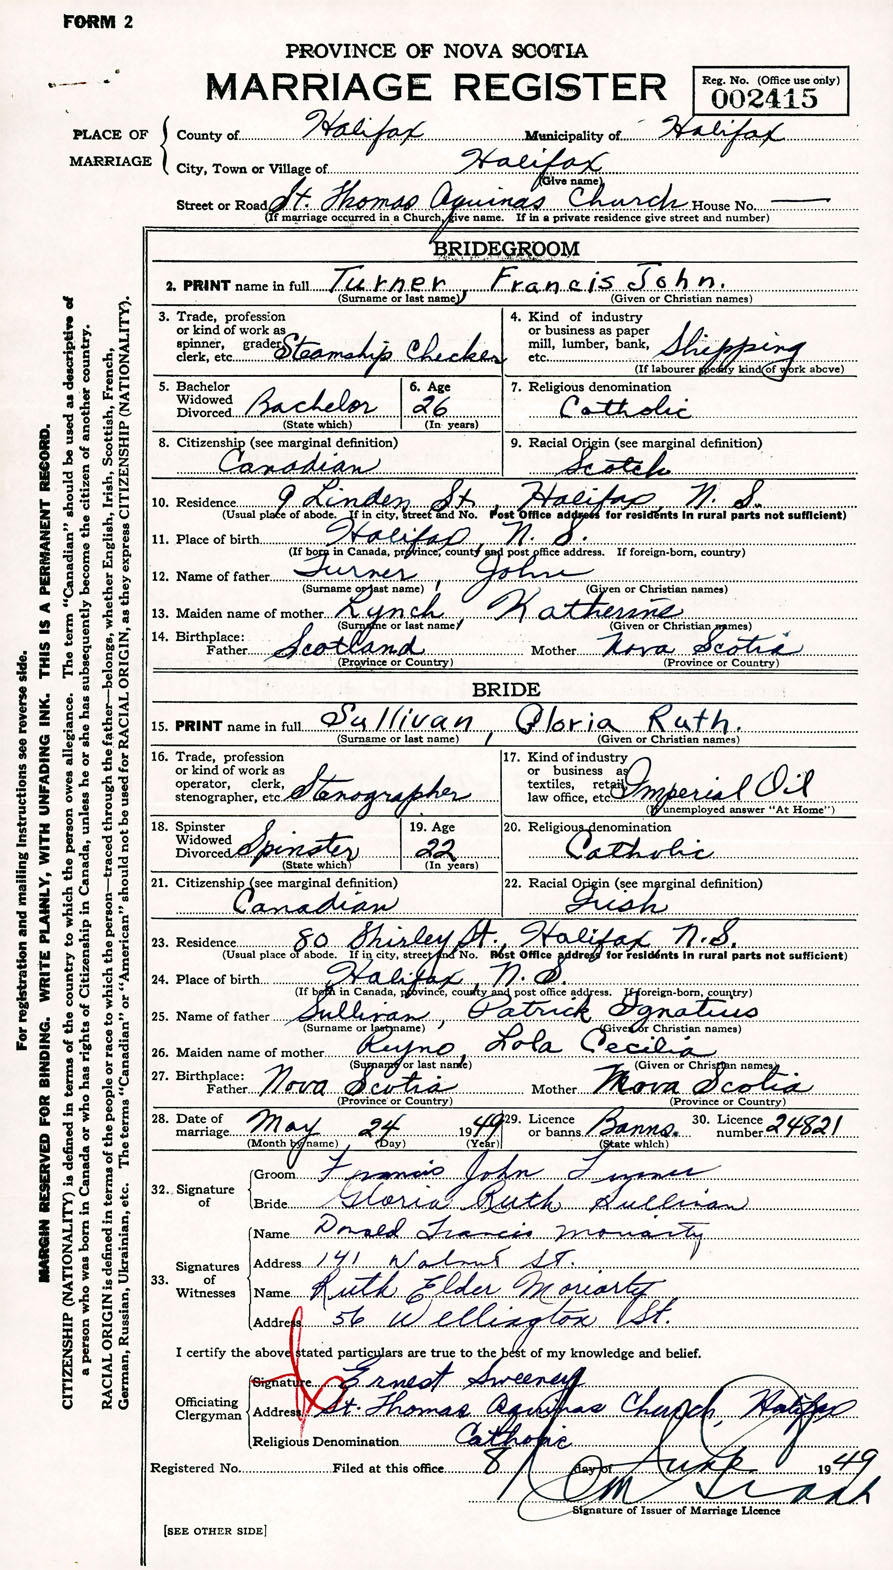 FORM 2
PROVINCE OF NOVA SCOTIA
MARRIAGE REGISTER
Reg. No. (Office use only)
002415
PLACE OF MARRIAGE
County of Halifax Municipality of Halifax
City, Town or Village of Halifax
(Give name)
Street or Road St. Thomas Aquinas Church House No. —
(If marriage occurred in a Church, give name. If in a private residence give street and number)
BRIDEGROOM
2. PRINT name in full Turner, Francis John.
(Surname or last name) (Given or Christian names)
3. Trade, profession or kind of work as spinner, grader, clerk, etc. Steamship Checker
4. Kind of industry or business as paper mill, lumber, bank, etc. Shipping
(If labourer specify kind of work above)
5. Bachelor Widowed Divorced Bachelor
(State which)
6. Age 26
(In years)
7. Religious denomination Catholic
8. Citizenship (see marginal definition)
Canadian
9. Racial Origin (see marginal definition)
Scotch
10. Residence 9 Linden St., Halifax, N. S.
(Usual place of abode. If in city, street and No. Post Office address for residents in rural parts not sufficient)
11. Place of birth Halifax, N. S.
(If born in Canada, province, county and post office address. If foreign-born, country)
12. Name of father Turner, John
(Surname or last name) (Given or Christian names)
13. Maiden name of mother Lynch, Katherine
(Surname or last name) (Given or Christian names)
14. Birthplace:
Father Scotland Mother Nova Scotia
(Province or Country) (Province or Country)
BRIDE
15. PRINT name in full Sullivan, Gloria Ruth.
(Surname or last name) (Given or Christian names)
16. Trade, profession or kind of work as operator, clerk, stenographer, etc. Stenographer
17. Kind of industry or business as textiles, retail, law office, etc. Imperial Oil
(If unemployed answer "At Home")
18. Spinster Widowed Divorced Spinster
(State which)
19. Age 22
(In years)
20. Religious denomination
Catholic
21. Citizenship (see marginal definition)
Canadian
22. Racial Origin (see marginal definition)
Irish
23. Residence 80 Shirley St., Halifax N.S.
(Usual place of abode. If in city, street and No. Post Office address for residents in rural parts not sufficient)
24. Place of birth Halifax, N. S.
(If born in Canada, province, county and post office address. If foreign-born, country)
25. Name of father Sullivan, Patrick Ignatius
(Surname or last name) (Given or Christian names)
26. Maiden name of mother Reyno, Lola Cecilia
(Surname or last name) (Given or Christian names)
27. Birthplace:
Father Nova Scotia Mother Nova Scotia
(Province or Country) (Province or Country)
28. Date of marriage May 24 1949
(Month by name) (Day) (Year)
29. Licence or banns Banns.
(State which)
30. Licence number 24821
32. Signature of
Groom Francis John Turner
Bride Gloria Ruth Sullivan
33. Signatures of Witnesses
Name Donald Francis Moriarty
Address 141 Walnut St.
Name Ruth Elder Moriarty
Address 56 Wellington St.
I certify the above stated particulars are true to the best of my knowledge and belief.
Officiating Clergyman
Signature Ernest Sweeney
Address St. Thomas Aquinas Church, Halifax
Religious Denomination Catholic
Registered No. Filed at this office 8 day of June 1949
Signature of Issuer of Marriage Licence
[SEE OTHER SIDE]
For registration and mailing instructions see reverse side.
MARGIN RESERVED FOR BINDING. WRITE PLAINLY, WITH UNFADING INK. THIS IS A PERMANENT RECORD.
CITIZENSHIP (NATIONALITY) is defined in terms of the country to which the person owes allegiance. The term "Canadian" should be used as descriptive of
a person who was born in Canada or who has rights of Citizenship in Canada, unless he or she has subsequently become the citizen of another country.
RACIAL ORIGIN is defined in terms of the people or race to which the person—traced through the father—belongs, whether English, Irish, Scottish, French,
German, Russian, Ukrainian, etc. The terms "Canadian" or "American" should not be used for RACIAL ORIGIN, as they express CITIZENSHIP (NATIONALITY).